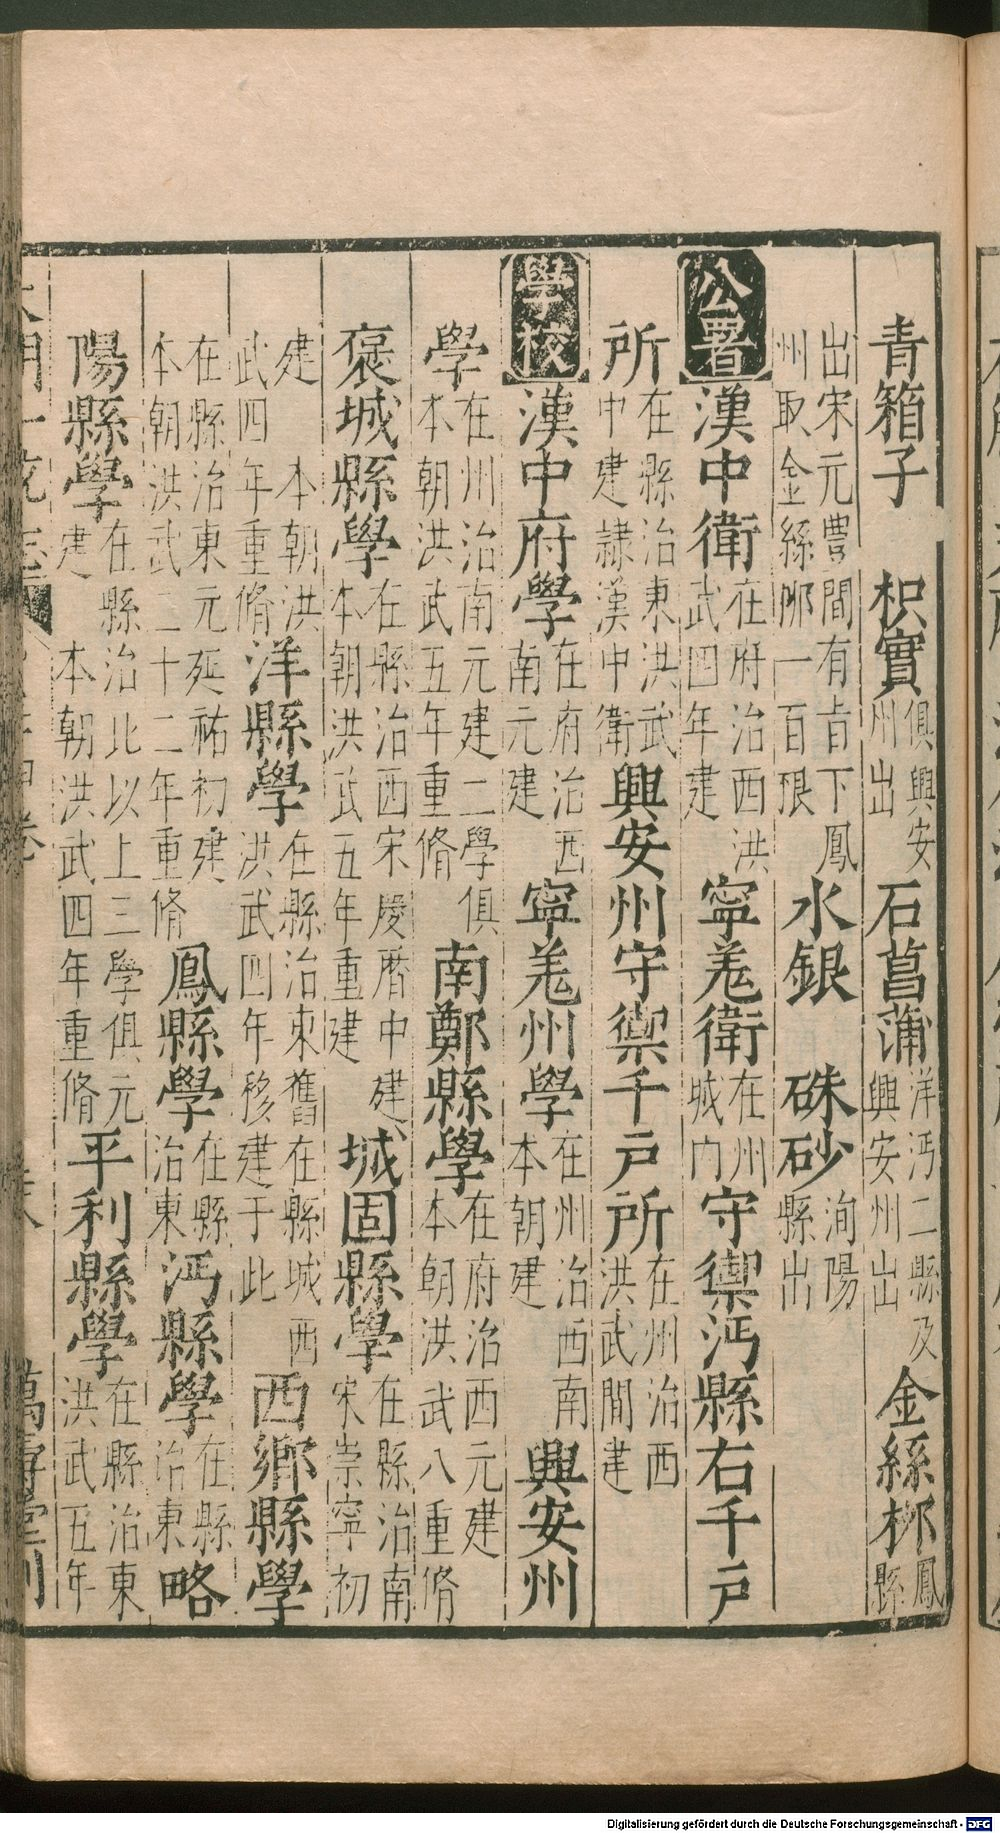 青箱子　枳實俱興安州出石菖蒲洋沔二縣及興安州出金絲桺鳳縣
出宋元豊間有㫖下鳳州取金絲桺一百根水銀　硃砂洵陽縣出
公署漢中衛在府治西洪武四年建寧羌衛在州城内守禦沔縣右千戶
所在縣治東洪武中建隷漢中衛興安州守禦千戶所在州治西洪武間建
學校漢中府學在府治西南元建寧羌州學在州治西南本朝建興安州
學在州治南元建二學俱本朝洪武五年重脩南鄭縣學在府治西元建本朝洪武八重脩
褒城縣學在縣治西宋慶曆中建本朝洪武五年重建城固縣學在縣治南宋崇寧初
建　本朝洪武四年重脩洋縣學在縣治東舊在縣城西洪武四年移建于此西鄉縣學
在縣治東元延祐初建本朝洪武二十二年重脩鳳縣學在縣治東沔縣學在縣治東略
陽縣學在縣治北以上三學俱元建　本朝洪武四年重脩平利縣學在縣治東洪武五年
大明一統志 卷 萬壽堂刊
Digitalisierung gefördert durch die Deutsche Forschungsgemeinschaft - DFG